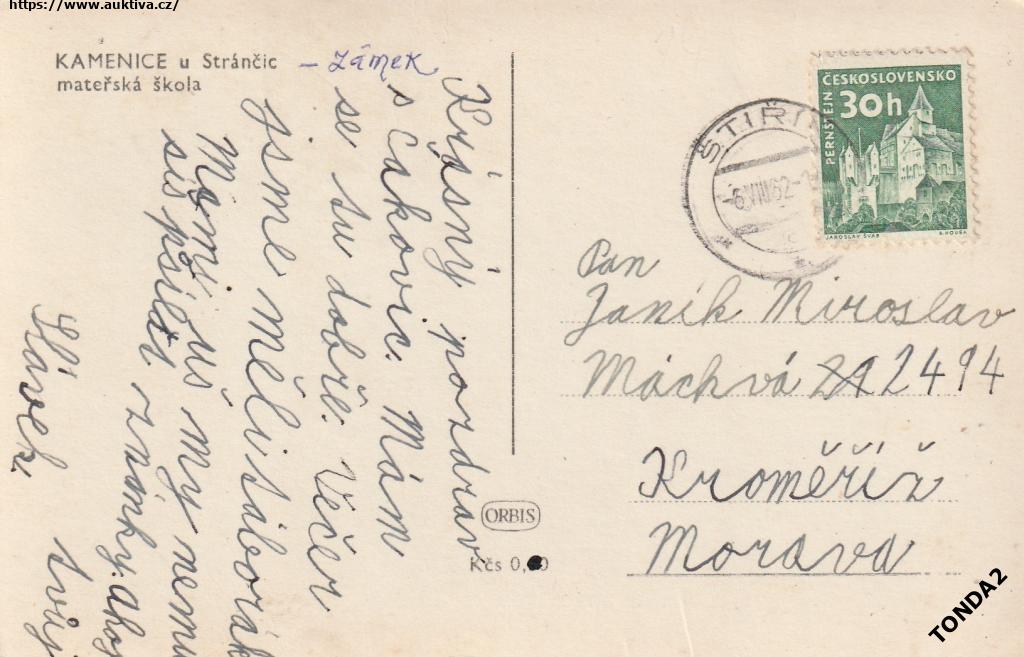 https://www.auktiva.cz/
KAMENICE u Stránčic – zámek
mateřská škola
Krásný pozdrav
s Čakovic. Mám
se tu dobře. Večer
jsme měli táborák
Momi už my nemu
sís psílat známky. Ahoj
tvůj
Slávek.
ORBIS
Kčs 0,
ČESKOSLOVENSKO
30h
PERNŠTEJN
JAROSLAV ŠVÁB
B. HOUSA
ŠTIŘÍN
-6.VIII.62-
Pan
Janík Miroslav
Máchvá 2414
Kroměříž
Morava
TONDA2